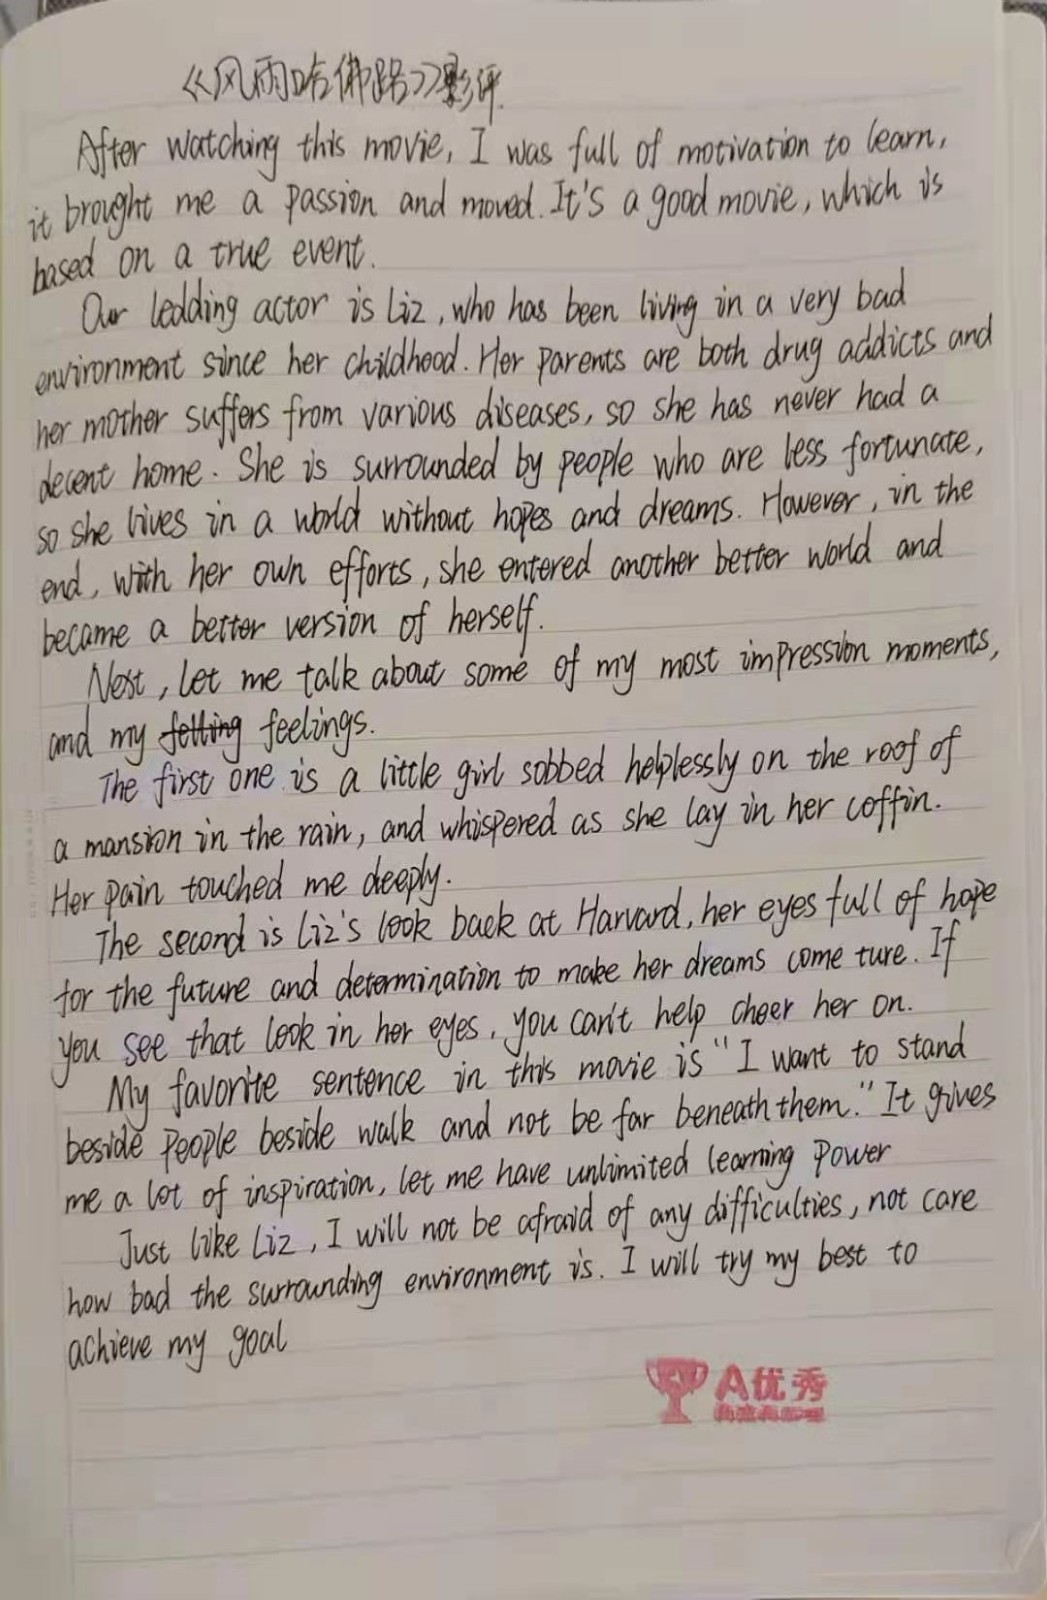 《风雨哈佛路》影评
After watching this movie, I was full of motivation to learn,
it brought me a passion and moved. It's a good movie, which is
based on a true event.
Our ledding actor is Liz, who has been living in a very bad
environment since her childhood. Her parents are both drug addicts and
her mother suffers from various diseases, so she has never had a
decent home. She is surrounded by people who are less fortunate,
so she lives in a world without hopes and dreams. However, in the
end, with her own efforts, she entered another better world and
became a better version of herself.
Nest, let me talk about some of my most impression moments,
and my feelings.
The first one is a little girl sobbed helplessly on the roof of
a mansion in the rain, and whispered as she lay in her coffin.
Her pain touched me deeply.
The second is Liz's look back at Harvard, her eyes full of hope
for the future and determination to make her dreams come ture. If
you see that look in her eyes, you can't help cheer her on.
My favorite sentence in this movie is "I want to stand
beside people beside walk and not be far beneath them." It gives
me a lot of inspiration, let me have unlimited learning power
Just like Liz, I will not be afraid of any difficulties, not care
how bad the surrounding environment is. I will try my best to
achieve my goal
A优秀